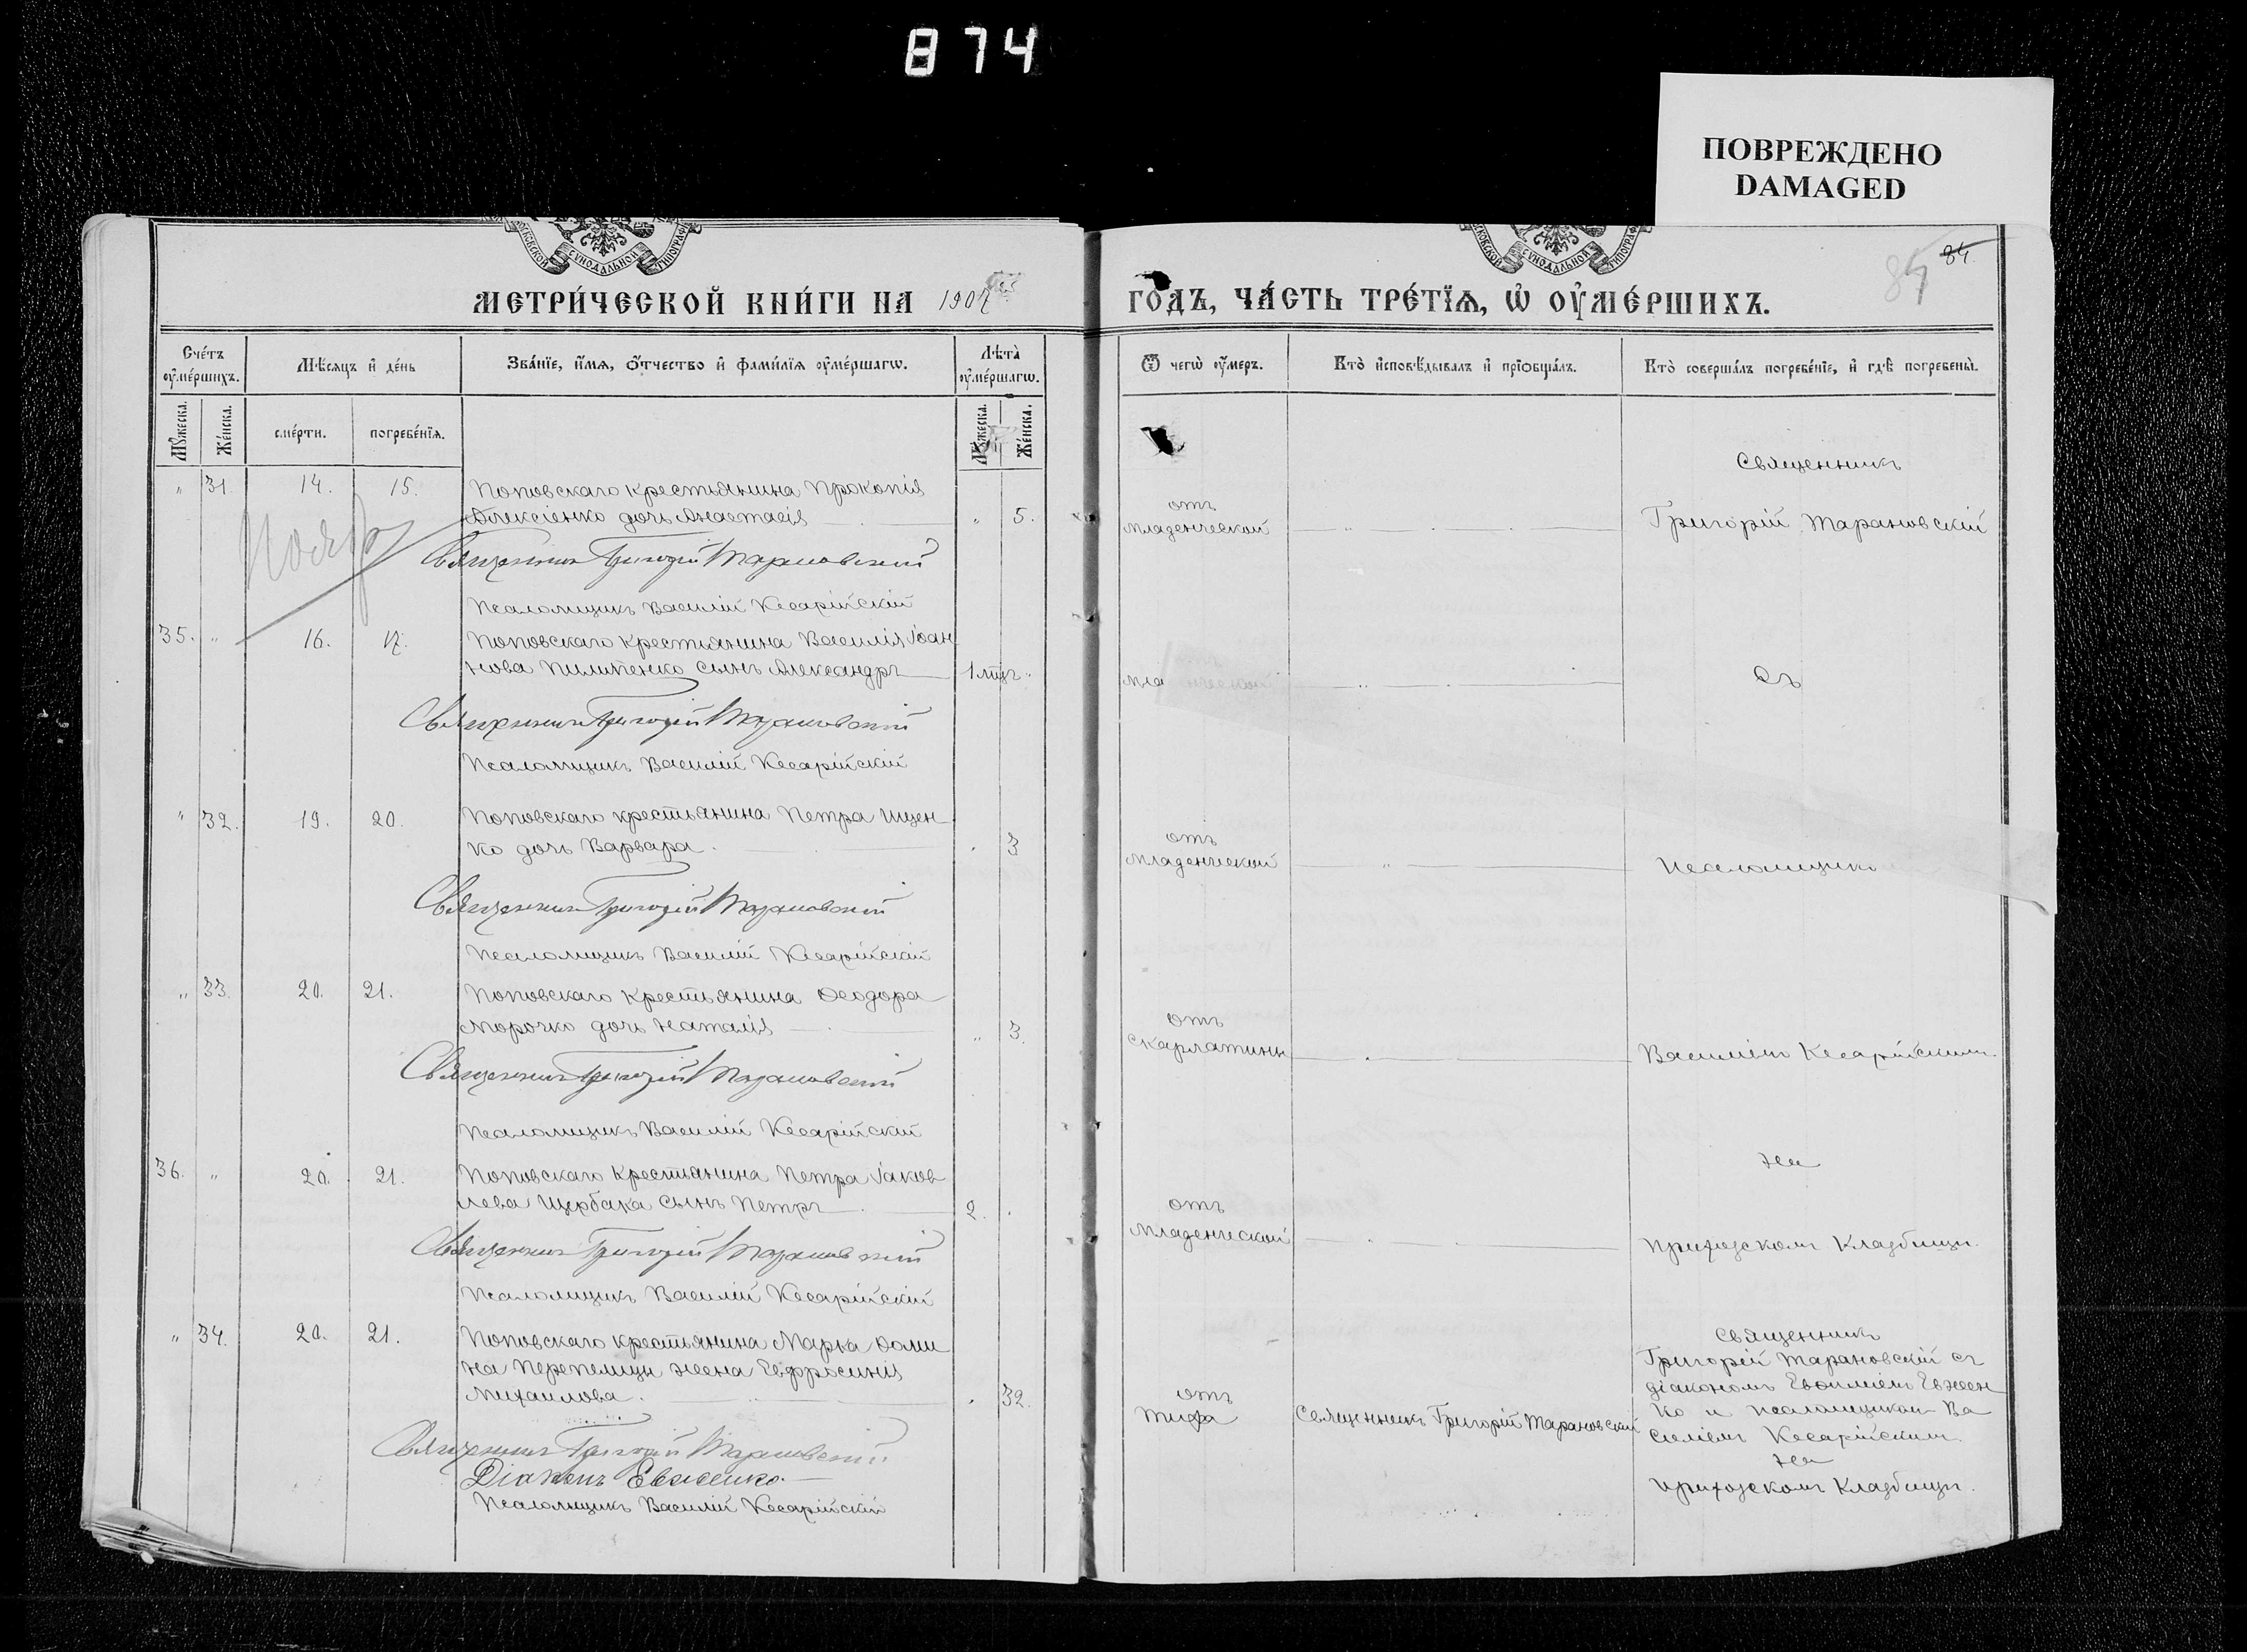 874
ПОВРЕЖДЕНО
DAMAGED
МЕТРИ́ЧЕСКОЙ КНИ́ГИ НА 1907
ГОДЪ, ЧА́СТЬ ТРЕ́ТЇѦ, Ѡ҆ ОУ҆МЕ́РШИХЪ.
84
84.
Сче́тъ оу҆ме́ршихъ.
Мѣ́сяцъ и҆ де́нь
Зва́нїе, и҆́мѧ, ѻ҆́тчество и҆ фами́лїѧ оу҆ме́ршагѡ.
Лѣ́та оу҆ме́ршагѡ.
Ѿ чегѡ̀ оу҆́меръ.
Кто̀ и҆сповѣ́дывалъ и҆ прїѻбща́лъ.
Кто̀ соверша́лъ погребе́нїе, и҆ гдѣ̀ погребены̀.
Мꙋ́жеска.
Же́нска.
сме́рти.
погребе́нїѧ.
Мꙋ́жеска.
Же́нска.
Священникъ
" 31 14. 15. Поповскаго крестьянина Прокопія
Алексіенко дочь Анастасія " 5.
отъ
младенческой
Григорій Тарановскій
Ноябрь
Священникъ Григорій Тарановскій
Псаломщикъ Василій Кесарійскій
35. " 16. 17. Поповскаго крестьянина Василія Іоан
нова Пилипенко сынъ Александръ 1 мцъ "
мла
Съ
Священникъ Григорій Тарановскій
Псаломщикъ Василій Кесарійскій
" 32. 19. 20. Поповскаго крестьянина Петра Ищен
ко дочь Варвара. 3
отъ
младенческой
Псаломщик
Священникъ Григорій Тарановскій
Псаломщикъ Василій Кесарійскій
" 33. 20. 21. Поповскаго крестьянина Ѳеодора
Морочко дочь Наталія " 3.
отъ
скарлатины
Василіем Кесарійскимъ
Священникъ Григорій Тарановскій
Псаломщикъ Василій Кесарійскій
36. " 20. 21. Поповскаго крестьянина Петра Іаков
лева Щербака сынъ Петръ 2.
отъ
младенческой
на
приходскомъ кладбищѣ.
Священникъ Григорій Тарановскій
Псаломщикъ Василій Кесарійскій
" 34. 20. 21. Поповскаго крестьянина Марка Ѳоми
на Перепелицы жена Евфросинія
Михаилова. 32.
отъ
тифа
Священникъ Григорій Тарановскій
Священникъ
Григорій Тарановскій съ
діакономъ Евѳиміемъ Евжен
ко и псаломщиком Ва
силіемъ Кесарійскимъ
на
приходскомъ кладбищѣ.
Священникъ Григорій Тарановскій
Діаконъ Евженко
Псаломщикъ Василій Кесарійскій